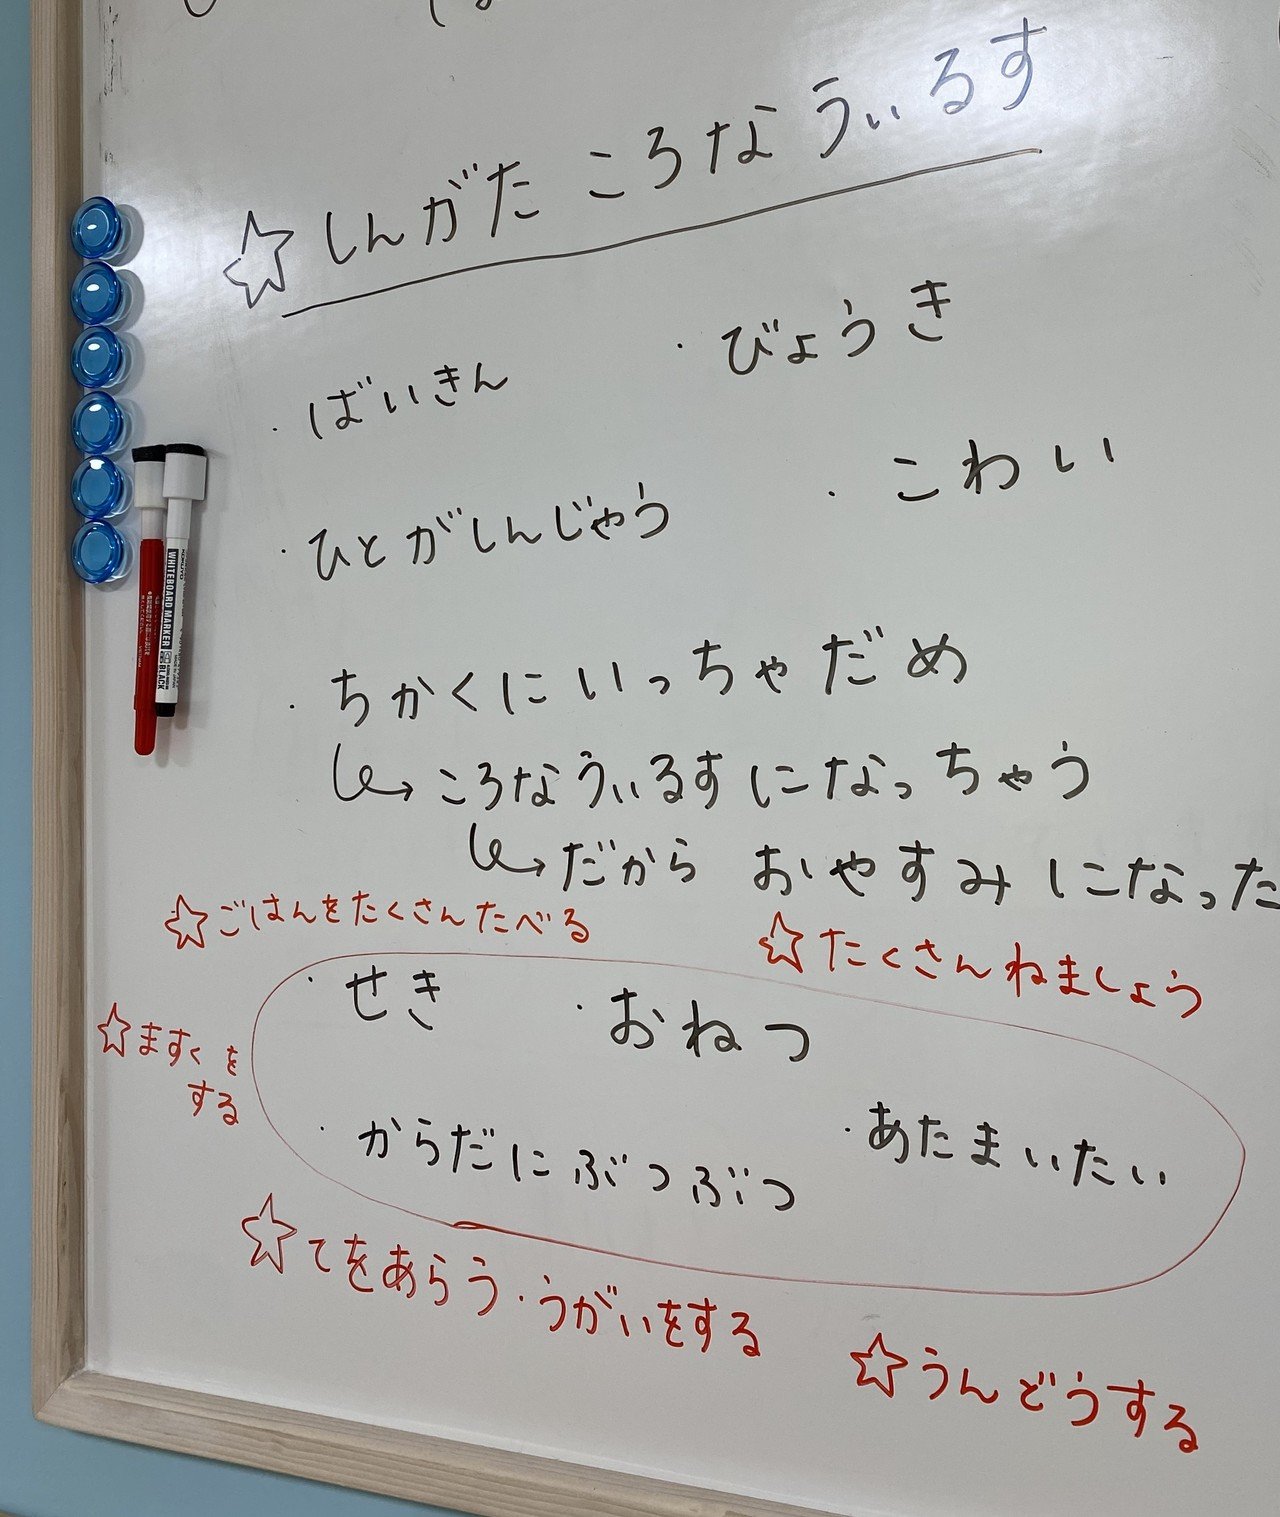 ☆しんがた ころなうぃるす
・ばいきん ・びょうき
・ひとがしんじゃう ・こわい
・ちかくにいっちゃだめ
↪ころなうぃるすになっちゃう
↪だから おやすみになった
☆ごはんをたくさんたべる
☆たくさんねましょう
・せき ・おねつ
☆ますくを
する
・からだにぶつぶつ ・あたまいたい
☆てをあらう・うがいをする
☆うんどうする
WHITEBOARD MARKER
BLACK